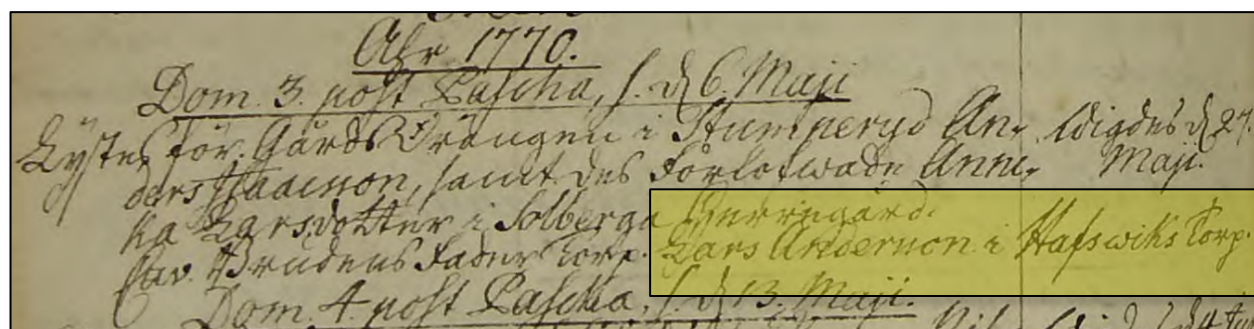 Åhr 1770.
Dom. 3. post Pascha, s. d. 6. Maji
Lystes för Gårds Drängen i Stumperyd An- Wigdes d. 27.
ders Isaacsson, samt des Förlofwade Anni- Maji.
ka Larsdotter i Solberga Herregård.
Cav. Brudens Fader Torp. Lars Andersson i Hafswiks Torp.
Dom. 4. post Pascha, s. d. 13. Maji.